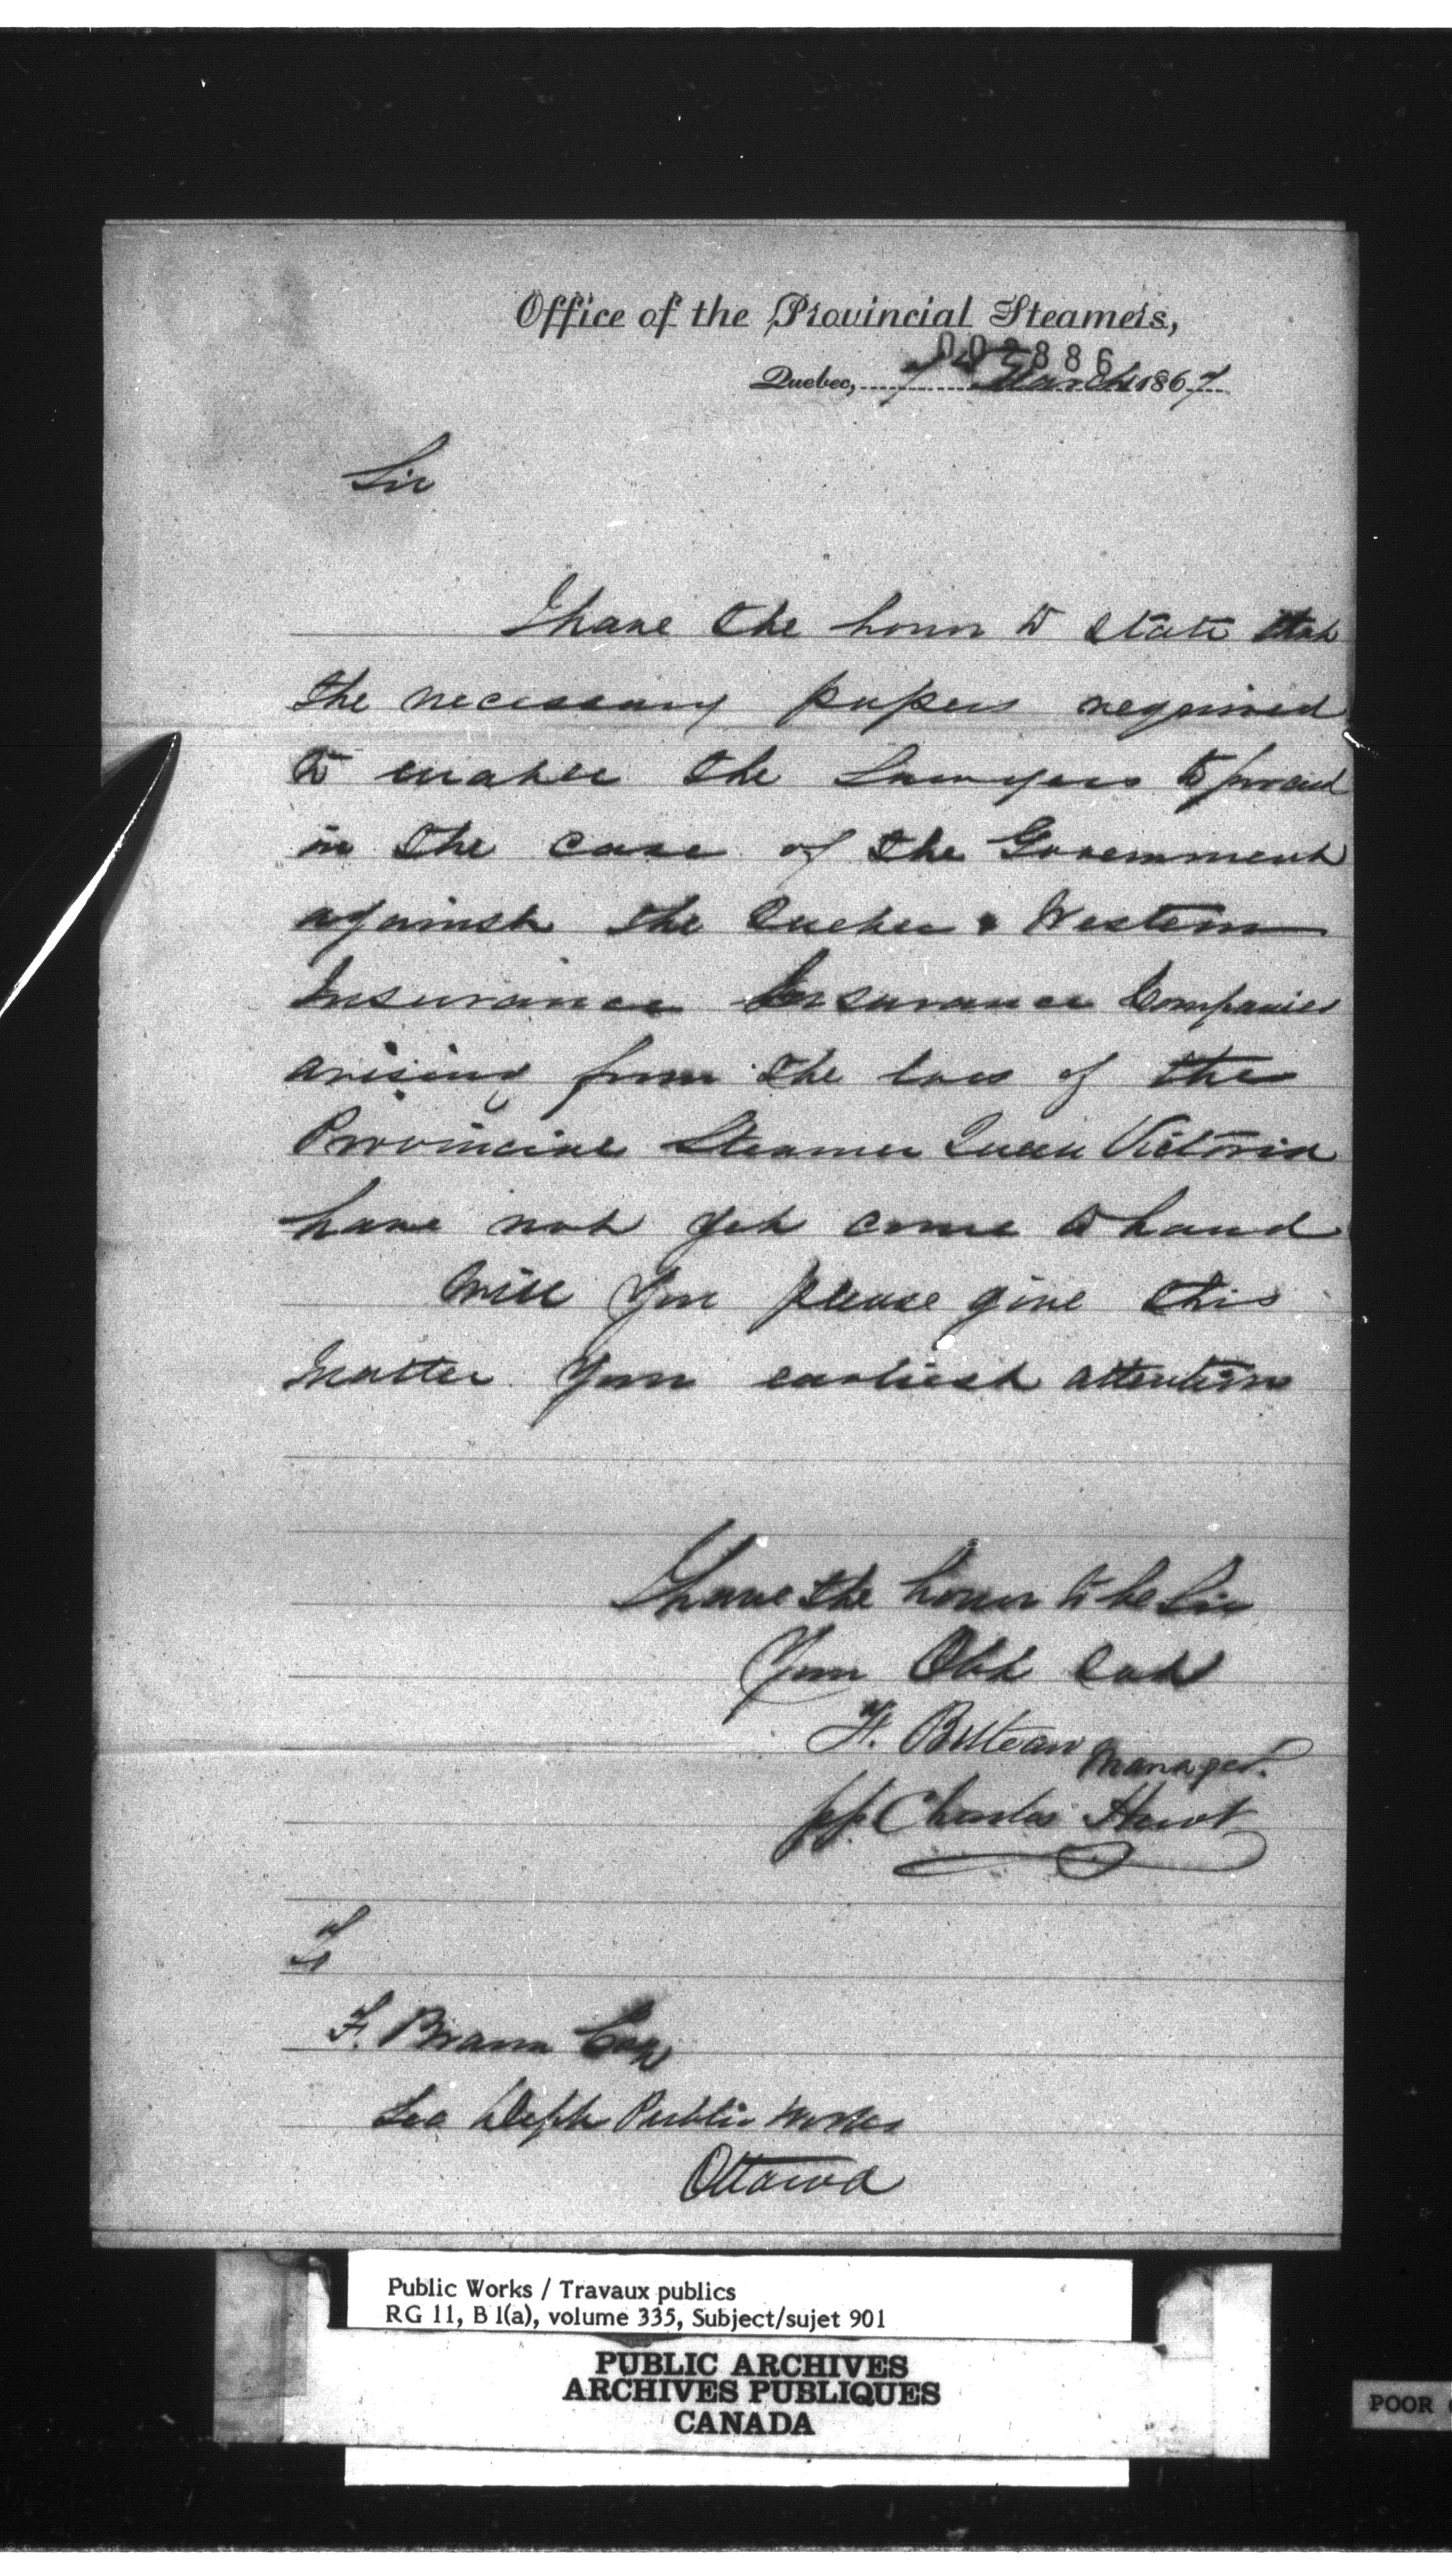 Office of the Provincial Steamers,
002886
Quebec, 7 March 1867
Sir
I have the honor to state that
the necessary papers required
to enable the Lawyers to proceed
in the case of the Government
against the Quebec & Western
Insurance Insurance Companies
arising from the loss of the
Provincial Steamer Queen Victoria
have not yet come to hand
Will you please give this
matter your earliest attention
I have the honor to be Sir
Your Obt
F. Buteau Manager.
pp. Charles
To
F. Braun Esq
Sec Dept Public Works
Ottawa
Public Works / Travaux publics
RG 11, B 1(a), volume 335, Subject/sujet 901
PUBLIC ARCHIVES
ARCHIVES PUBLIQUES
CANADA
POOR